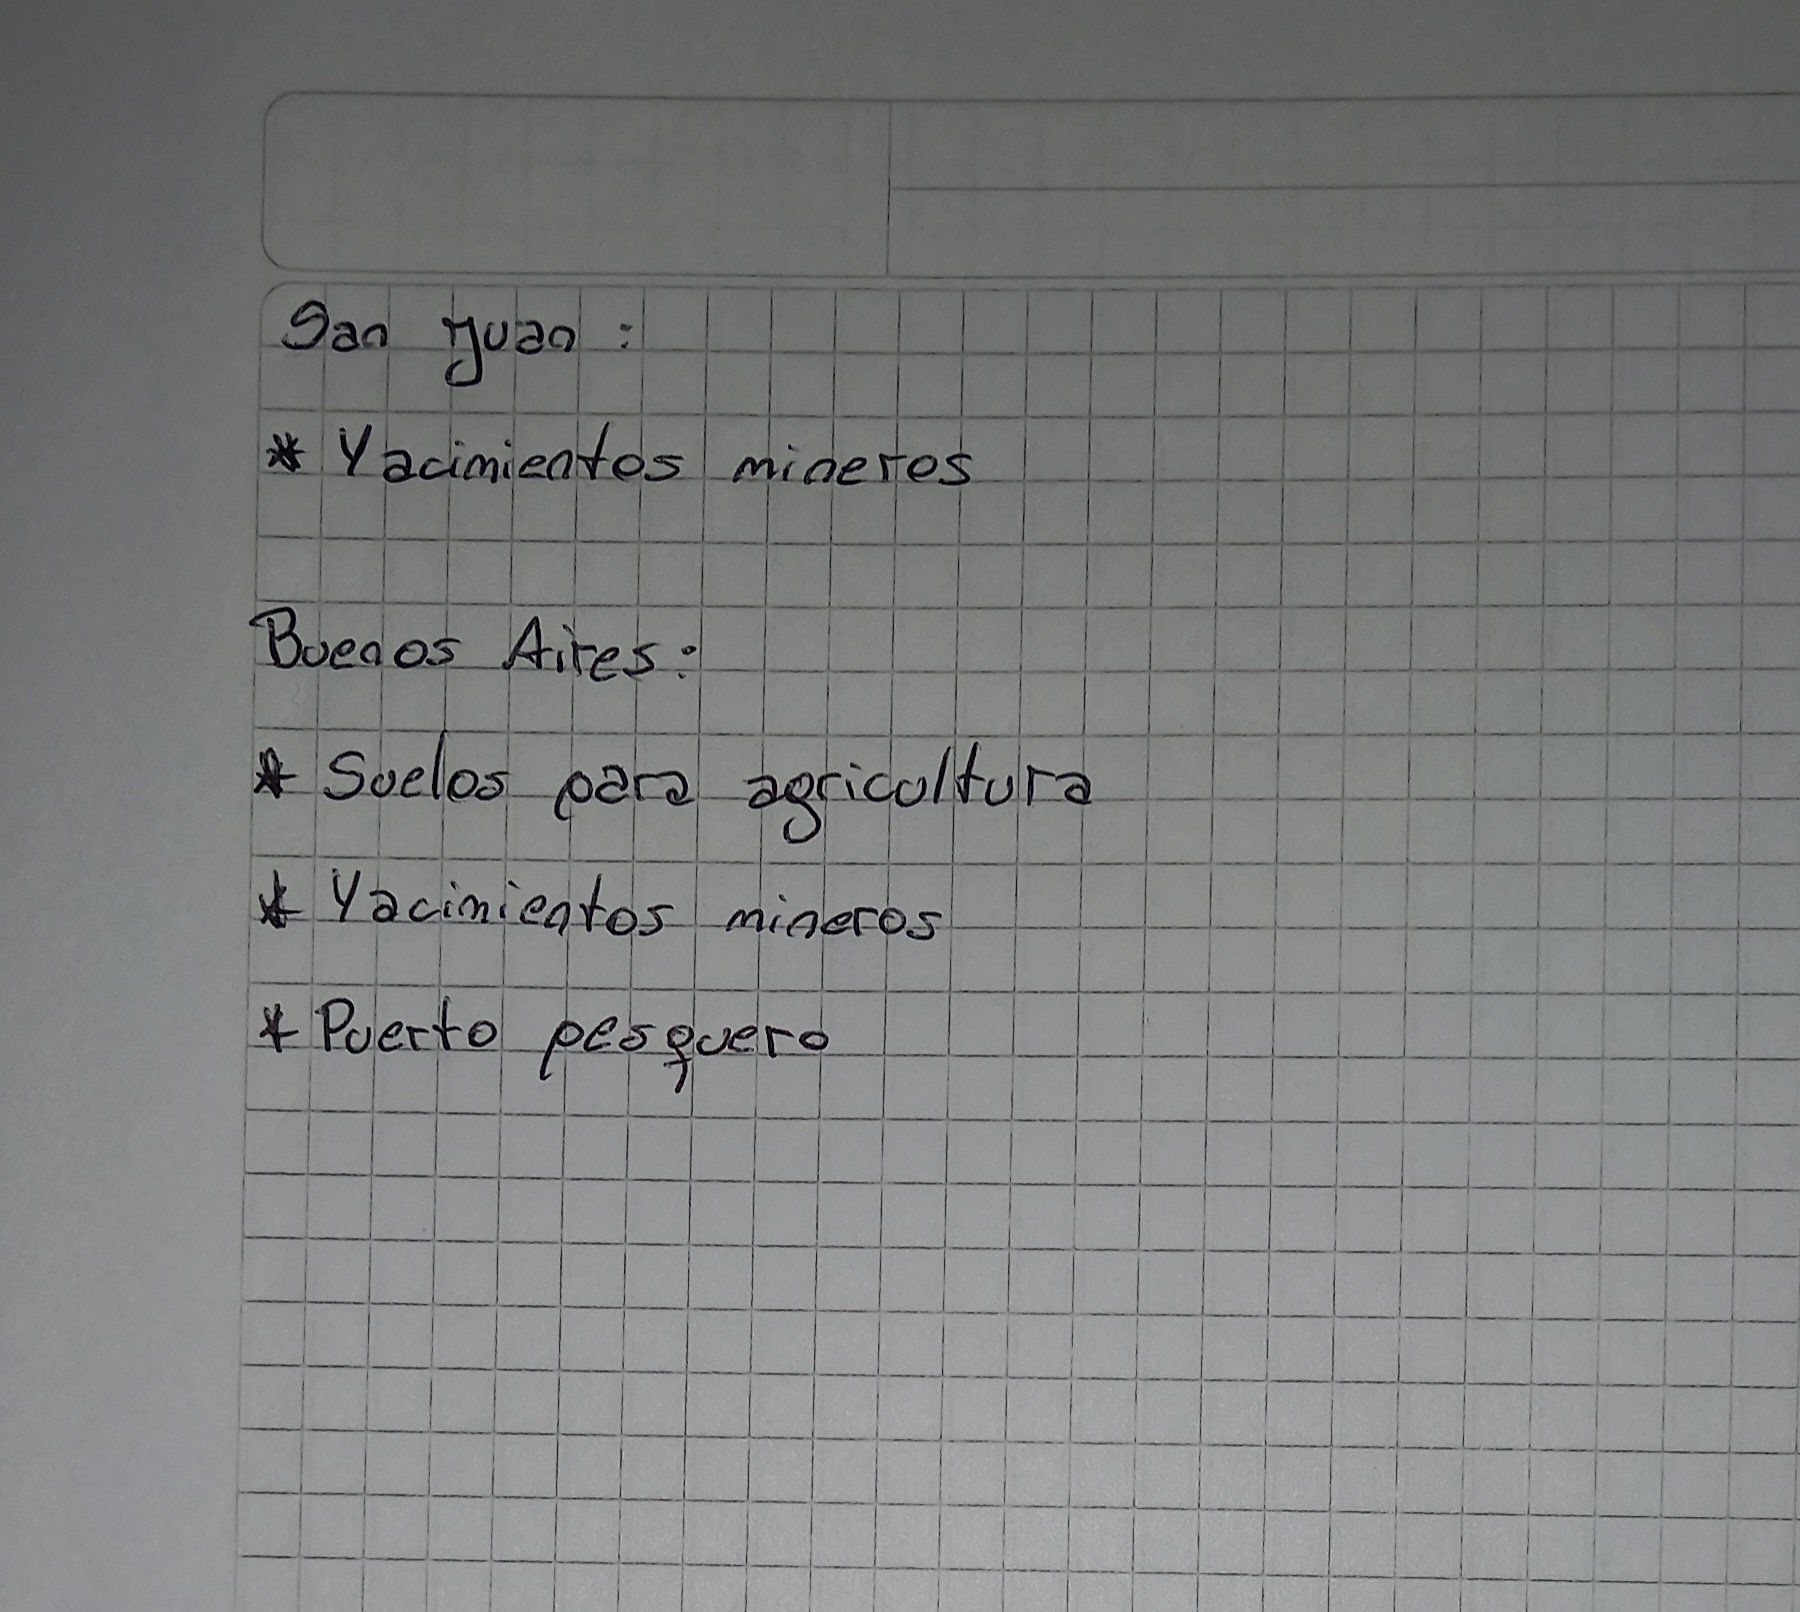 San Juan :
* Yacimientos mineros
Buenos Aires:
* Suelos para agricultura
* Yacimientos mineros
* Puerto pesquero